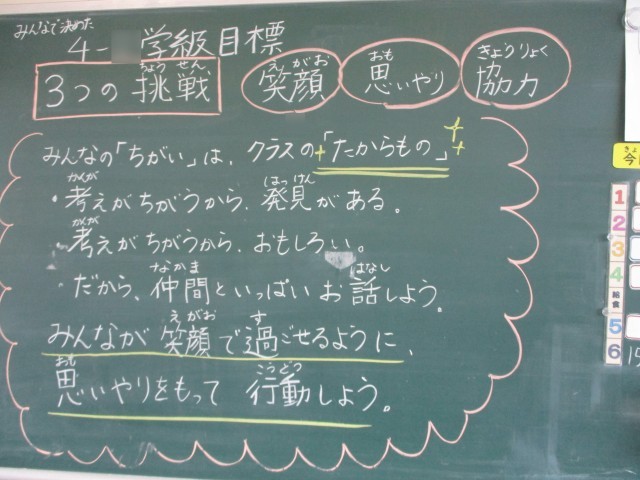 みんなで決めた
4- 学級目標
3つの挑戦 笑顔 思いやり 協力
ちょうせん えがお おも きょうりょく
みんなの「ちがい」は、クラスの「たからもの」
・考えがちがうから、発見がある。
かんが はっけん
・考えがちがうから、おもしろい。
かんが
・だから、仲間といっぱいお話しよう。
なかま はなし
みんなが笑顔で過ごせるように、
えがお す
思いやりをもって 行動しよう。
おも こうどう
今
きょ
1
2
3
4
給食
5
6